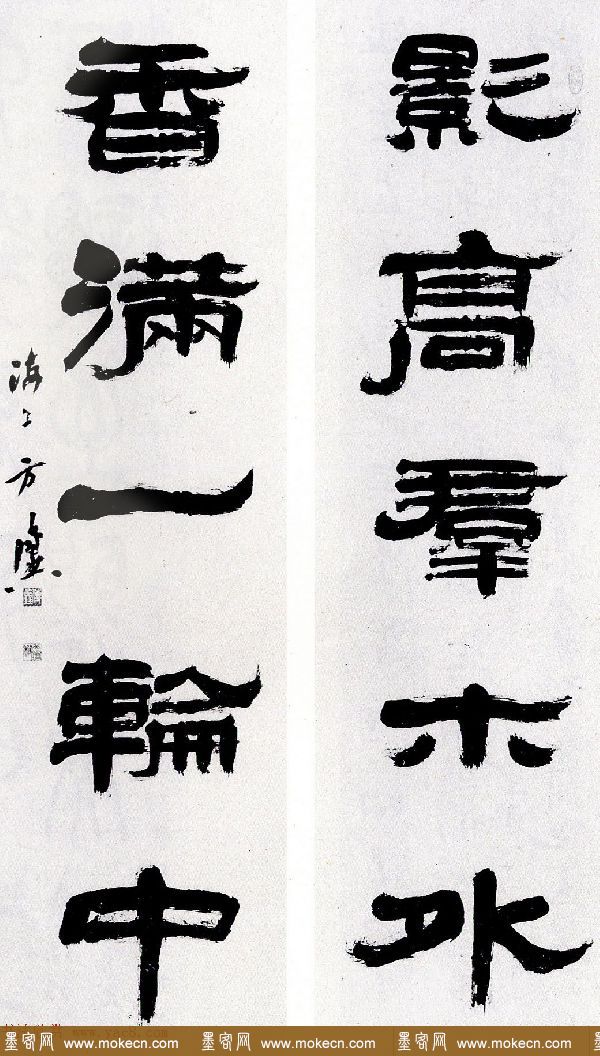 影高羣木外
香滿一輪中
海上方
墨客网 www.mokecn.com 墨客网 www.mokecn.com 墨客网 www.mokecn.com